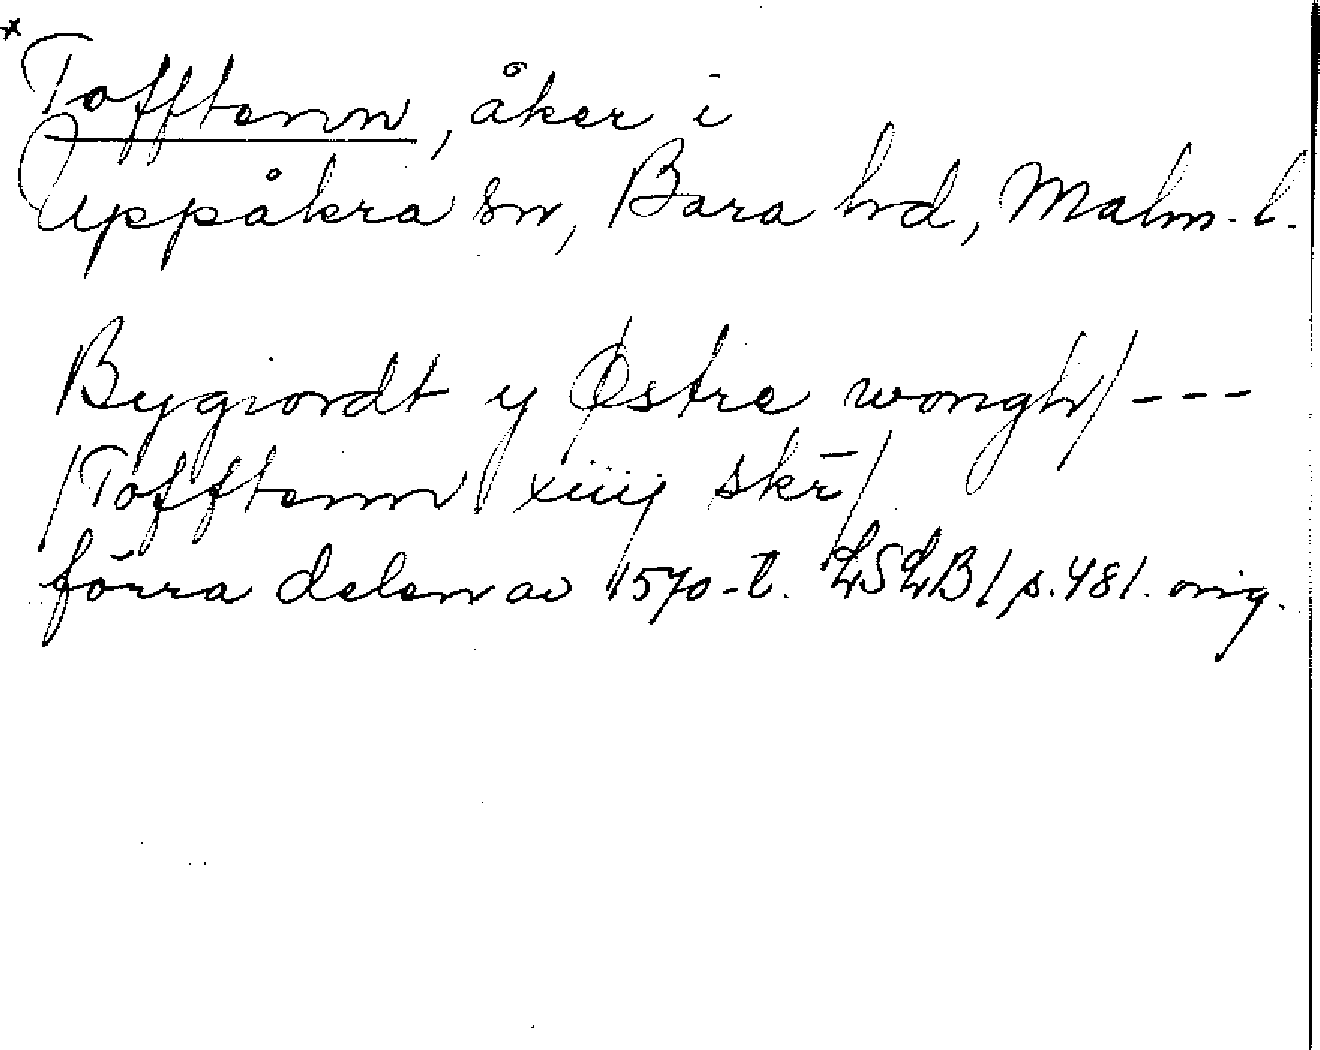 x Tofftenn, åker i
Uppåkra sn, Bara hd, Malm. l.
Bygiordt y Østre wongh / ---
/ Tofftenn xiiij skr̄ /
förra delen av 1570-t. LSLB 1, s. 481. orig.